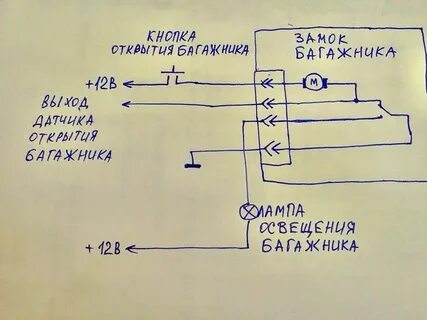 КНОПКА
ОТКРЫТИЯ БАГАЖНИКА
ЗАМОК
БАГАЖНИКА
+12В
М
ВЫХОД
ДАТЧИКА
ОТКРЫТИЯ
БАГАЖНИКА
ЛАМПА
ОСВЕЩЕНИЯ
БАГАЖНИКА
+12В